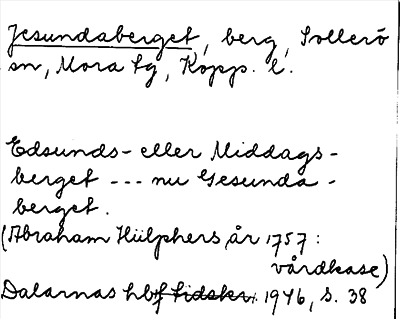 Jesundaberget, berg, Sollerö
sn, Mora tg, Kopp. l.
Edsunds- eller Middags-
berget --- nu Gesunda-
berget.
(Abraham Hülphers, år 1757:
vårdkase)
Dalarnas hbf tidskr. 1946, s. 38